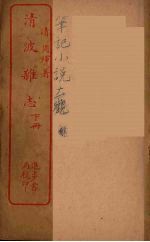 清 周煇著
清波雜志 下冊
進步書
局校印
筆記小說大觀